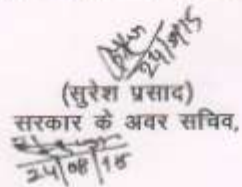 24/08/15
(सुरेश प्रसाद)
सरकार के अवर सचिव,
24/08/15